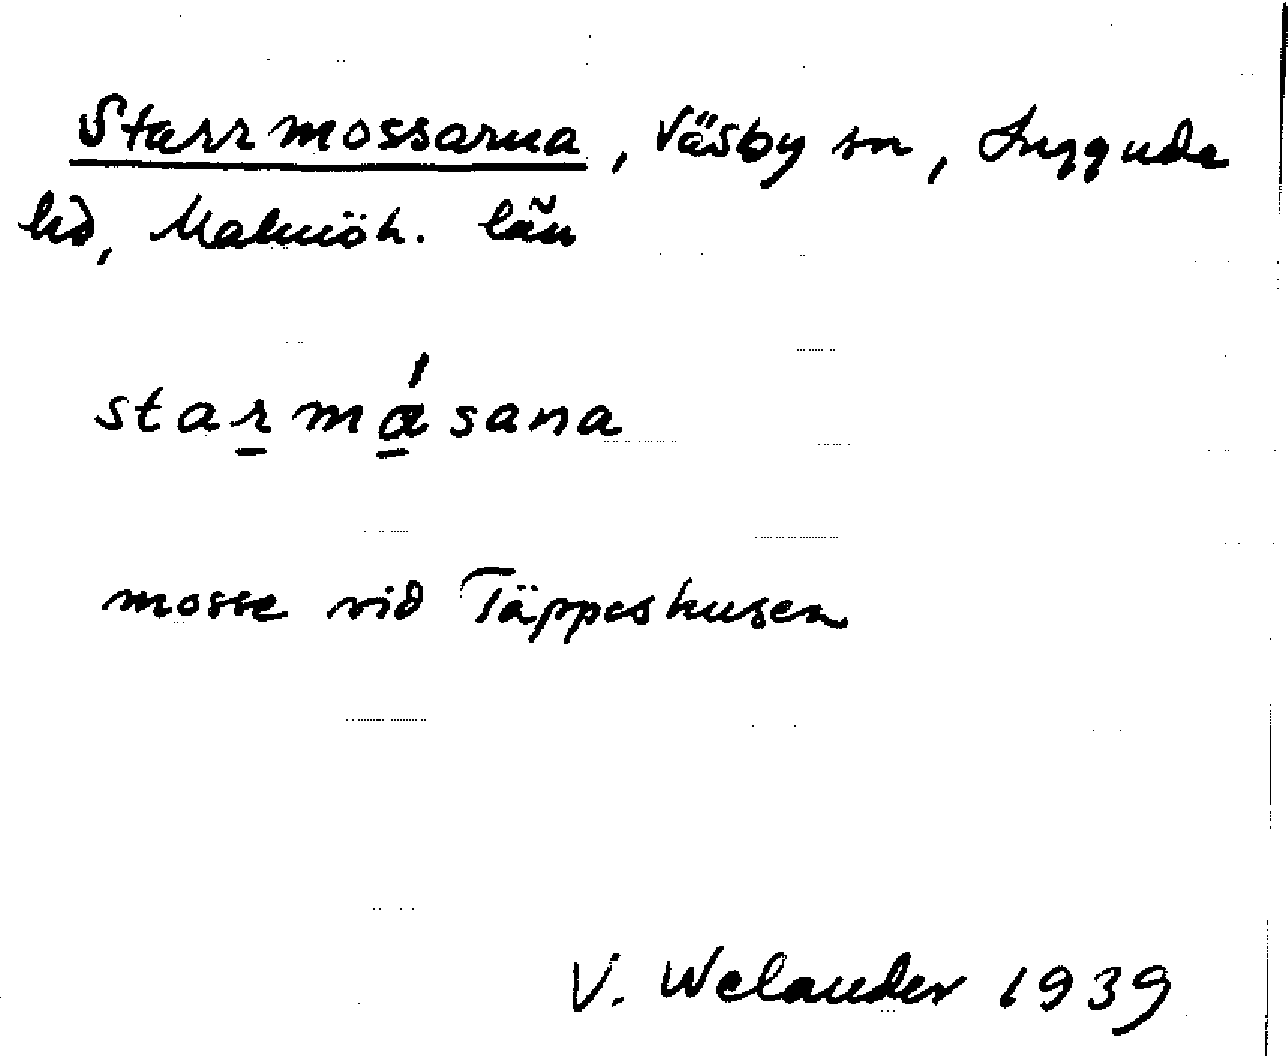 Starrmossarna, Väsby sn, Luggude
hd, Malmöh. län
starmásana
mosse vid Täppeshusen
V. Welander 1939